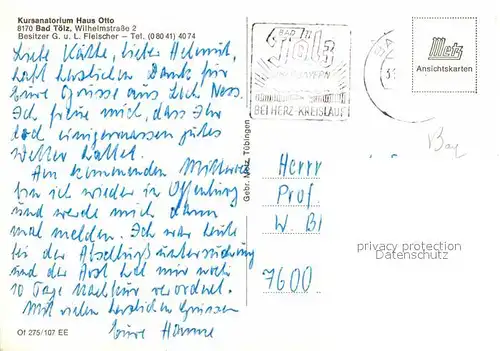 Kursanatorium Haus Otto
8170 Bad Tölz, Wilhelmstraße 2
Besitzer G. u. L. Fleischer – Tel. (0 80 41) 40 74
Liebe Käthe, lieber Helmut,
habt herzlichen Dank für
Eure Grüsse aus Loch Ness.
Ich freue mich, dass Ihr
doch einigermassen gutes
Wetter hattet.
Am kommenden Mittwoch
bin ich wieder in Offenburg
und werde mich dann
mal melden. Ich war heute
bei der Abschlußuntersuchung
und der Arzt hat mir noch
10 Tage Nachkur verordnet.
Mit vielen herzlichen Grüssen
Eure Hanne
Of 275/107 EE
Gebr. Metz, Tübingen
BAD
Tölz
BAYERN
BEI HERZ-KREISLAUF
Metz
Ansichtskarten
Bay
Herrn
Prof.
W. Bl
privacy protection
Datenschutz
7600